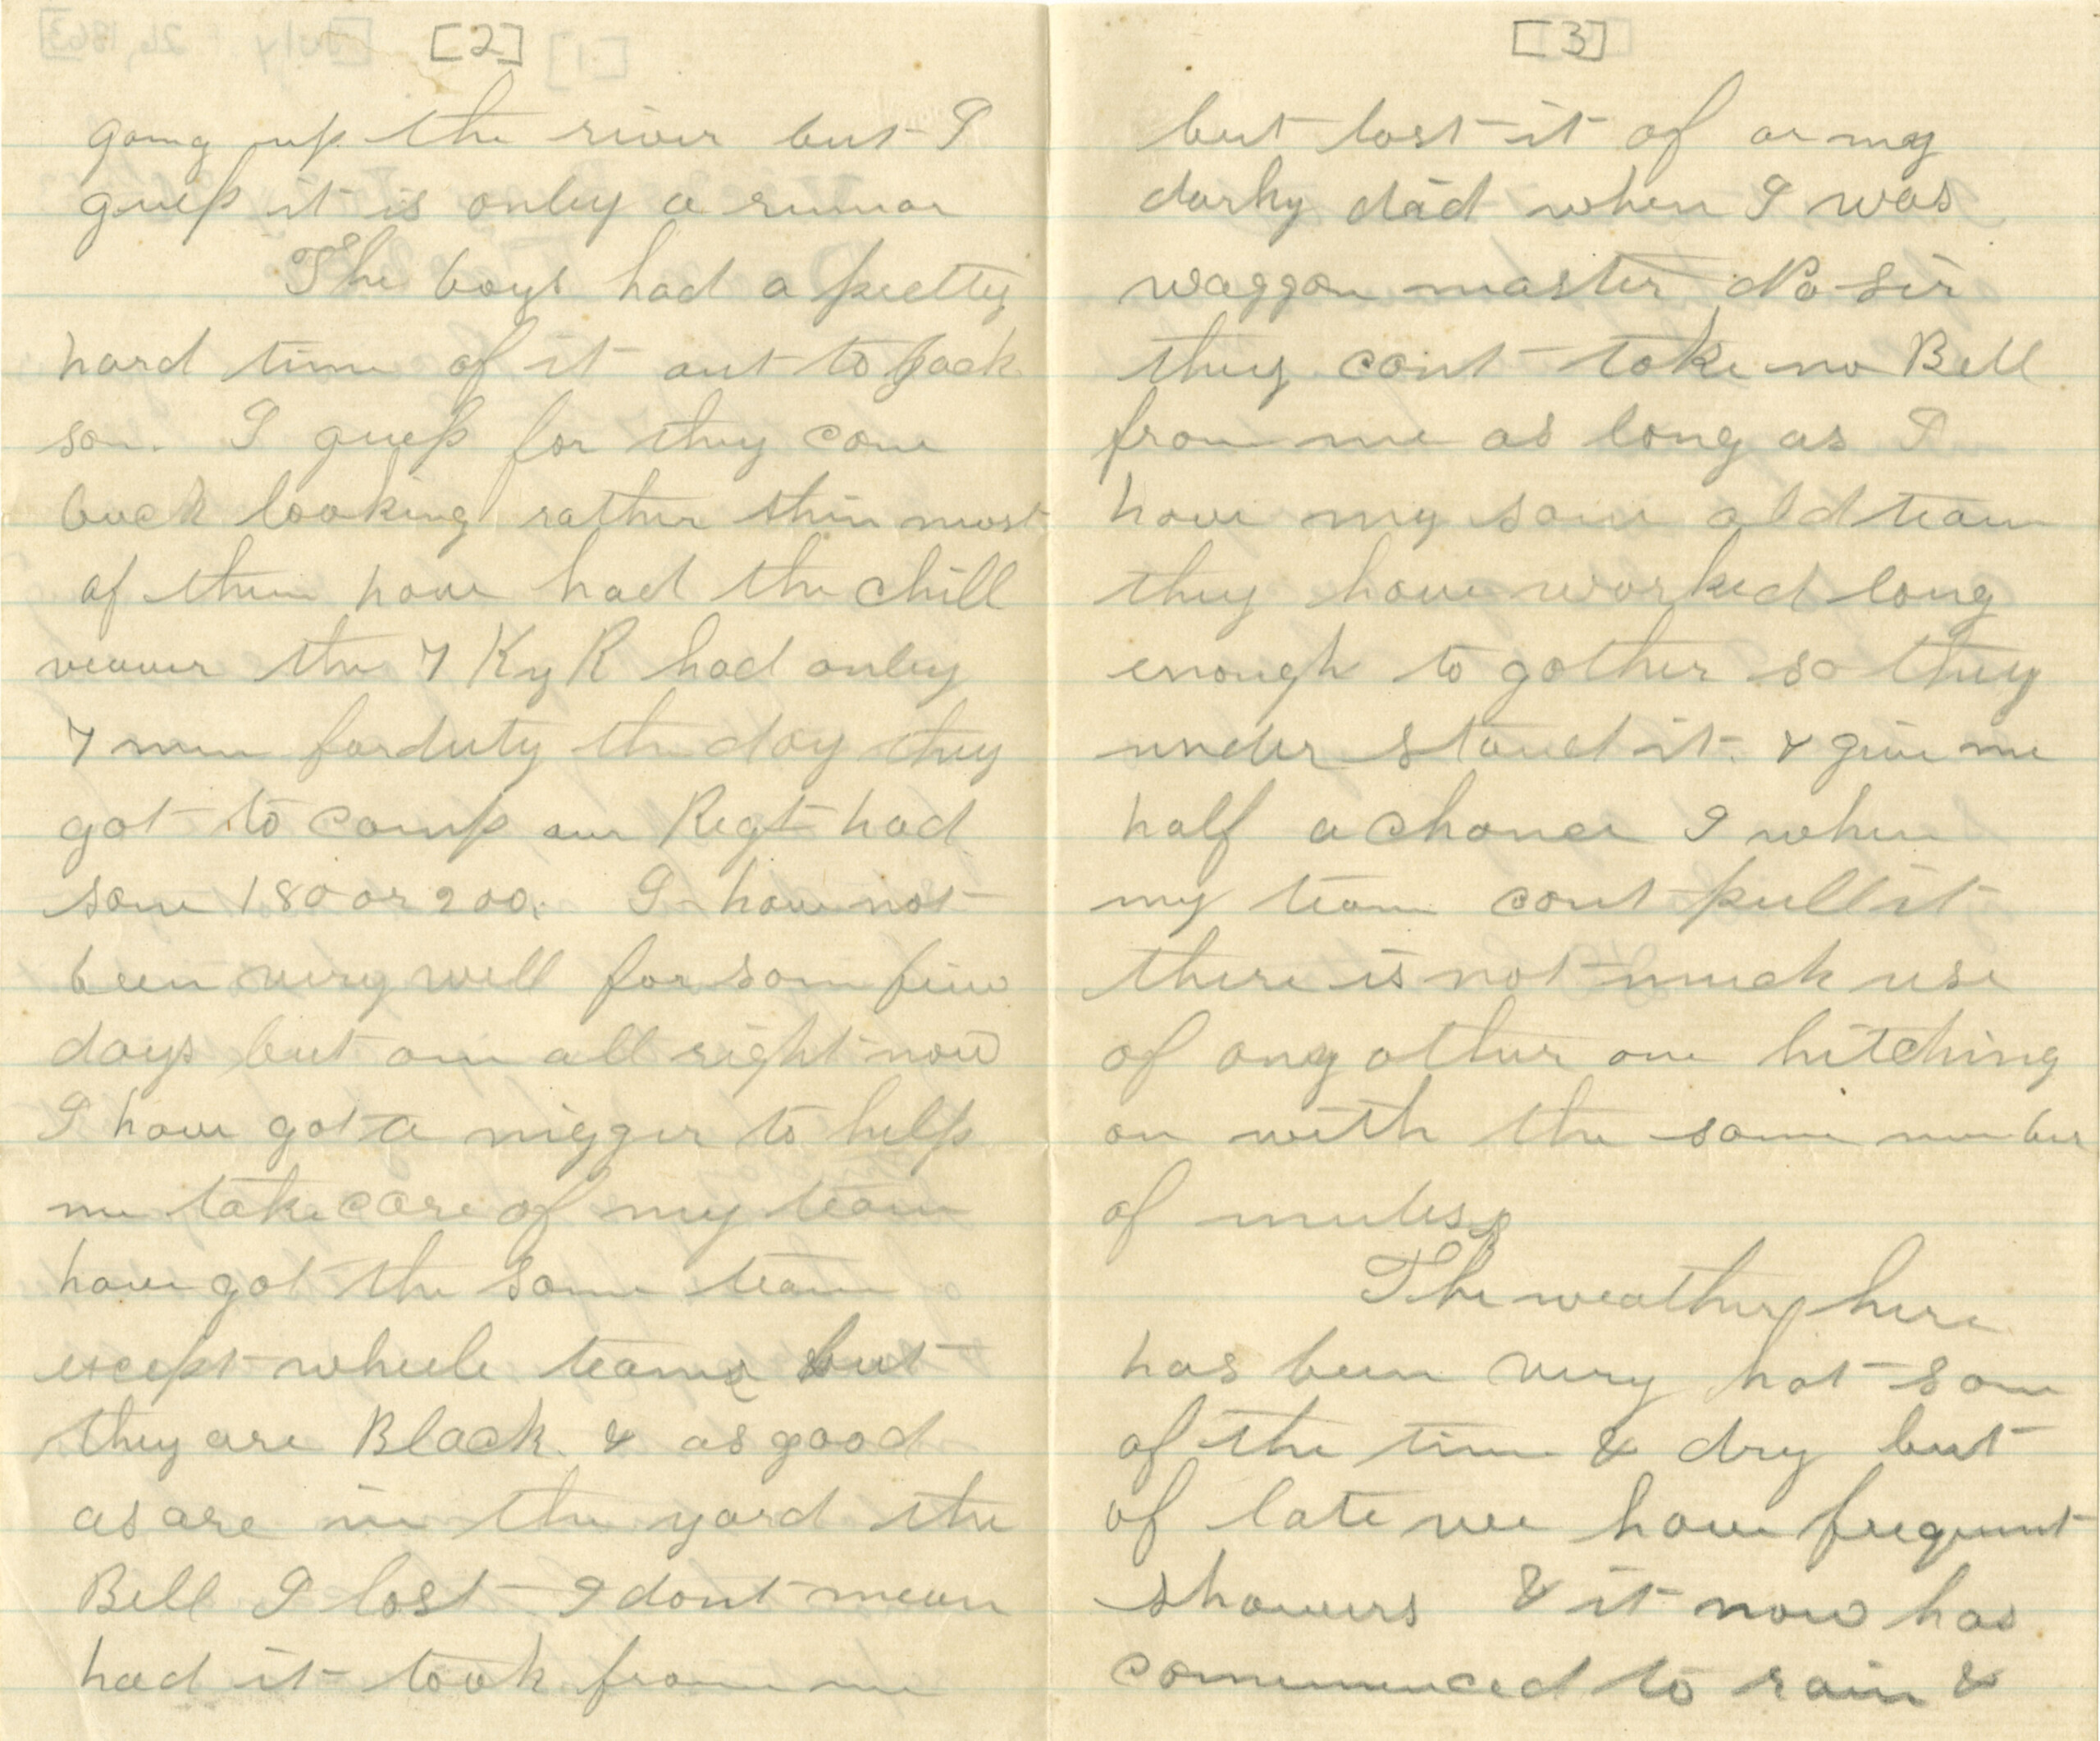 [2]
going up the river but I
guess it is onley a rumor
The boys had a pretty
hard time of it out to Jack
son. I guess for they come
back looking rather thin most
of them have had the chill
the 7 Ky R had onley
7 men for duty the day they
got to camp our Regt had
some 180 or 200. I have not
been very well for som few
days but am all right now
I have got a nigger to help
me take care of my team
have got the same team
except wheele team but
they are Black & as good
as are in the yard the
Bell I lost I dont mean
had it took from me
[3]
but lost it of or my
darky did when I was
waggon master No sir
they cant take no Bell
from me as long as I
have my same old team
they have worked long
enough to gother so they
under stand it. & give me
half a chance I when
my team cant pull it
there is not much use
of any other one hitching
on with the same number
of mules
The weather here
has been very hot som
of the time & dry but
of late we have frequent
showers & it now has
commenced to rain &